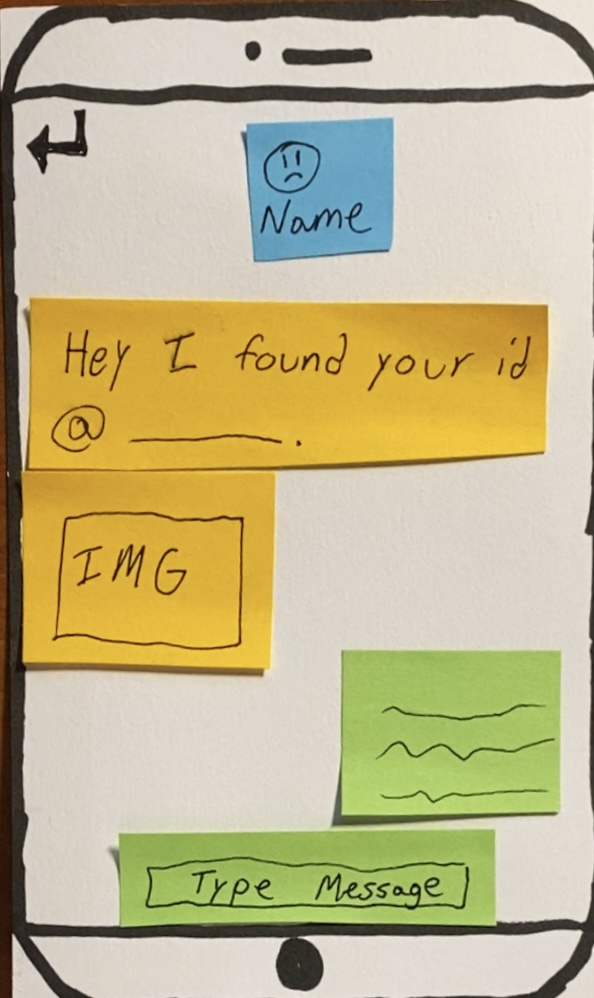 Name
Hey I found your id
@ ______.
IMG
Type Message